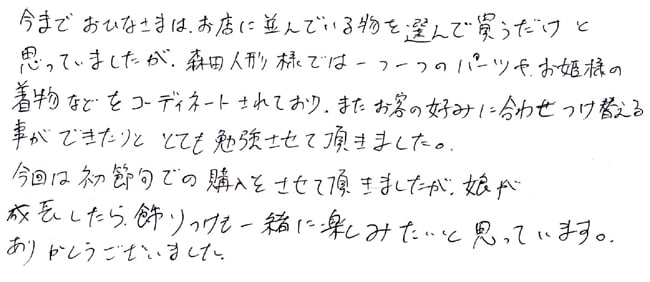 今まで おひなさまは、お店に並んでいる物を選んで買うだけ と
思っていましたが、森田人形様では一つ一つのパーツや、お姫様の
着物などをコーディネートされており、またお客の好みに合わせつけ替える
事ができたりと とても勉強させて頂きました。
今回は初節句での購入をさせて頂きましたが、娘が
成長したら、飾りつけも一緒に楽しみたいと思っています。
ありがとうございました。